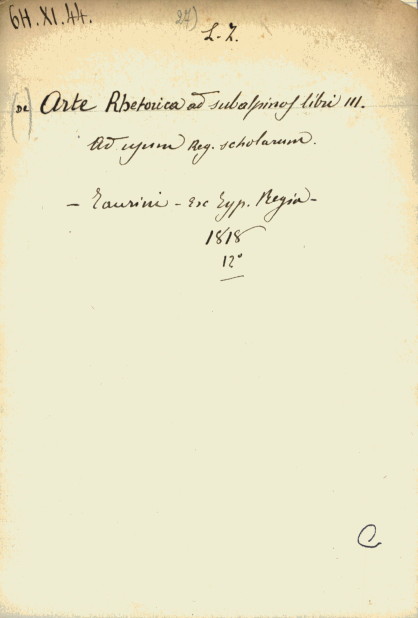 6H.XI.44.
27)
L. Z.
(De) Arte Rhetorica ad subalpinos libri III.
Ad usum Reg. scholarum.
- Taurini - Ex Typ. Regia -
1818
12°
C